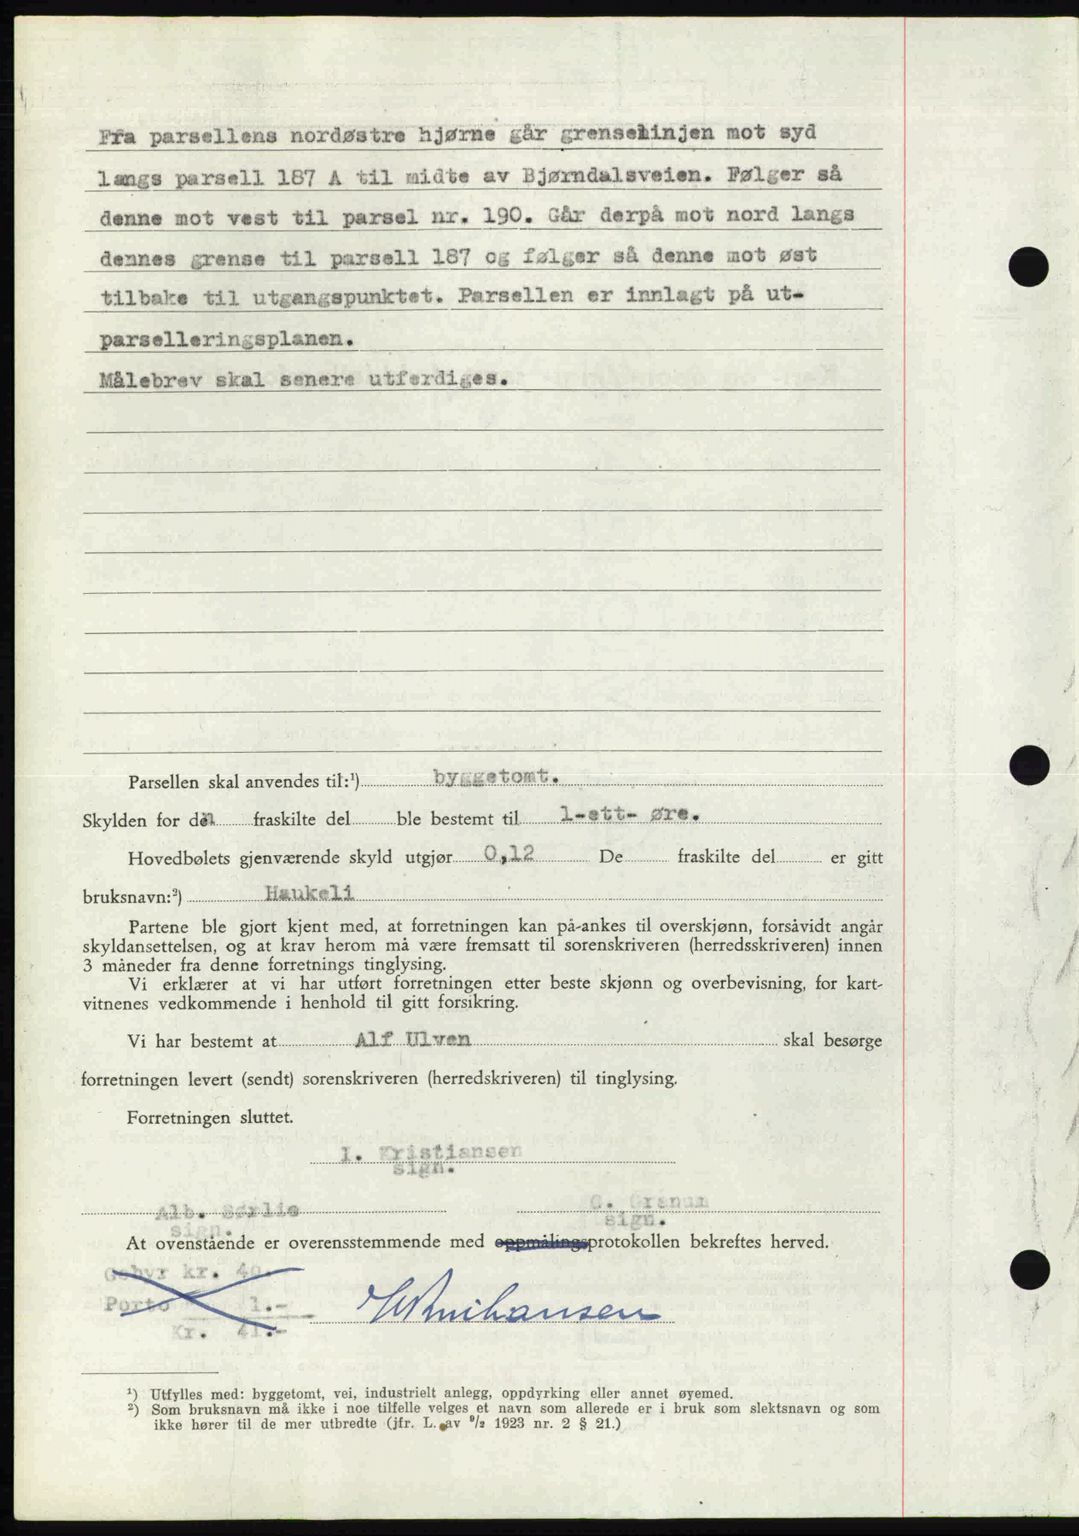 Fra parsellens nordøstre hjørne går grenselinjen mot syd
langs parsell 187 A til midte av Bjørndalsveien. Følger så
denne mot vest til parsel nr. 190. Går derpå mot nord langs
dennes grense til parsell 187 og følger så denne mot øst
tilbake til utgangspunktet. Parsellen er innlagt på ut-
parselleringsplanen.
Målebrev skal senere utferdiges.
Parsellen skal anvendes til:¹) byggetomt.
Skylden for den fraskilte del ble bestemt til 1-ett- øre.
Hovedbølets gjenværende skyld utgjør 0,12 De fraskilte del er gitt
bruksnavn:²) Haukeli
Partene ble gjort kjent med, at forretningen kan på-ankes til overskjønn, forsåvidt angår
skyldansettelsen, og at krav herom må være fremsatt til sorenskriveren (herredsskriveren) innen
3 måneder fra denne forretnings tinglysing.
Vi erklærer at vi har utført forretningen etter beste skjønn og overbevisning, for kart-
vitnenes vedkommende i henhold til gitt forsikring.
Vi har bestemt at Alf Ulven skal besørge
forretningen levert (sendt) sorenskriveren (herredskriveren) til tinglysing.
Forretningen sluttet.
I. Kristiansen
sign.
Alb. Sørlie G. Granum
sign. sign.
At ovenstående er overensstemmende med oppmålingsprotokollen bekreftes herved.
Gebyr kr. 40.-
Porto 1.-
Kr. 41.-
¹) Utfylles med: byggetomt, vei, industrielt anlegg, oppdyrking eller annet øyemed.
²) Som bruksnavn må ikke i noe tilfelle velges et navn som allerede er i bruk som slektsnavn og som
ikke hører til de mer utbredte (jfr. L. av ⁹/₂ 1923 nr. 2 § 21.)